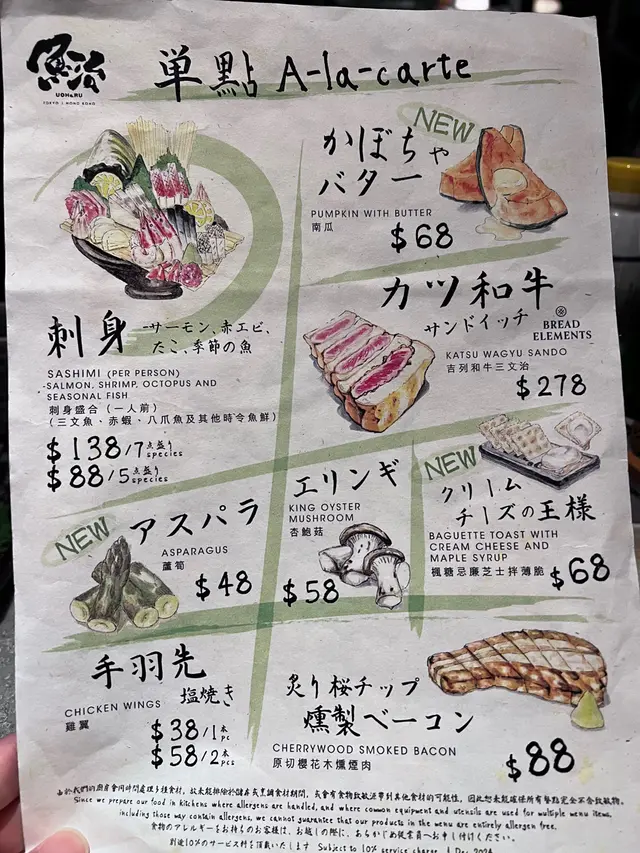 魚治
UOHARU
TOKYO | HONG KONG
単點 A-la-carte
NEW
かぼちゃ
バター
PUMPKIN WITH BUTTER
南瓜
$68
カツ和牛
サンドイッチ
BREAD
ELEMENTS
KATSU WAGYU SANDO
吉列和牛三文治
$278
刺身 -サーモン、赤エビ、
たこ、季節の魚
SASHIMI (PER PERSON)
-SALMON, SHRIMP, OCTOPUS AND
SEASONAL FISH
刺身盛合（一人前）
（三文魚、赤蝦、八爪魚及其他時令魚鮮）
$138/7点盛り species
$88/5点盛り species
NEW
アスパラ
ASPARAGUS
蘆筍
$48
エリンギ
KING OYSTER
MUSHROOM
杏鮑菇
$58
NEW
クリーム
チーズの王様
BAGUETTE TOAST WITH
CREAM CHEESE AND
MAPLE SYRUP
楓糖忌廉芝士拌薄脆
$68
手羽先
塩焼き
CHICKEN WINGS
雞翼
$38/1本 pc
$58/2本 pcs
炙り桜チップ
燻製ベーコン
CHERRYWOOD SMOKED BACON
原切櫻花木燻煙肉
$88
由於我們的廚房會同時間處理多種食材，故未能排除於儲存或烹調食材期間，或會有食物致敏源帶到其他食材的可能性，因此恕未能確保所有餐點完全不含致敏物。
Since we prepare our food in kitchens where allergens are handled, and where common equipment and utensils are used for multiple menu items,
including those may contain allergens, we cannot guarantee that our products in the menu are entirely allergen free.
食物のアレルギーをお持ちのお客様は、お越しの際に、あらかじめ従業員へお申し付けください。
別途10%のサービス料を頂戴いたします Subject to 10% service charge | Dec 2024